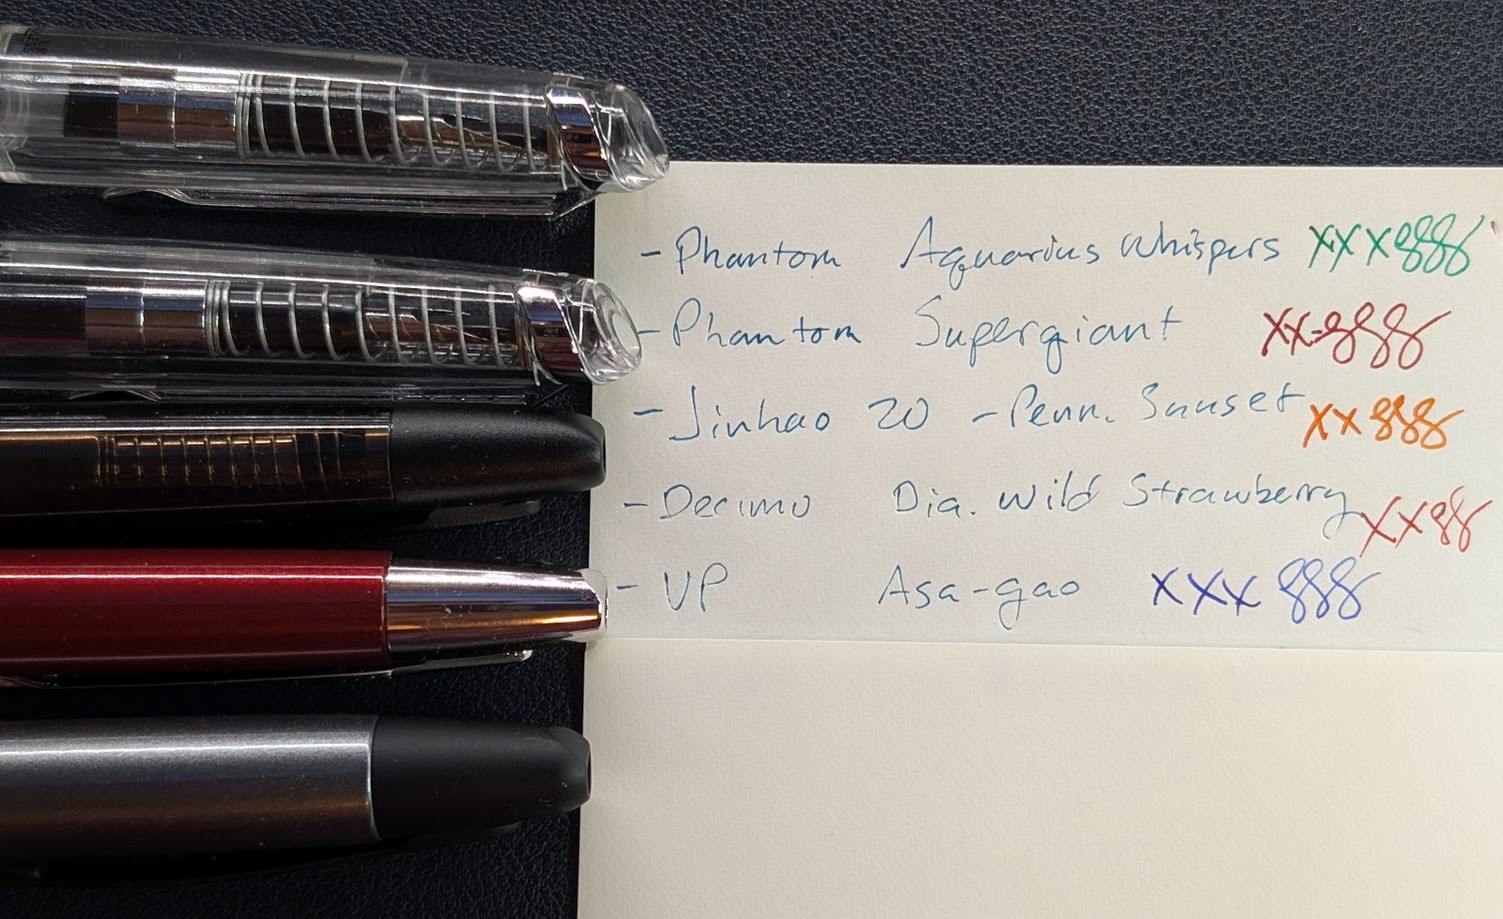 - Phantom Aquarius Whispers xxxggg
- Phantom Supergiant xx-ggg
- Jinhao 20 - Penn. Sunset xxggg
- Decimo Dia. Wild Strawberry xxgg
- VP Asa-gao xxxggg